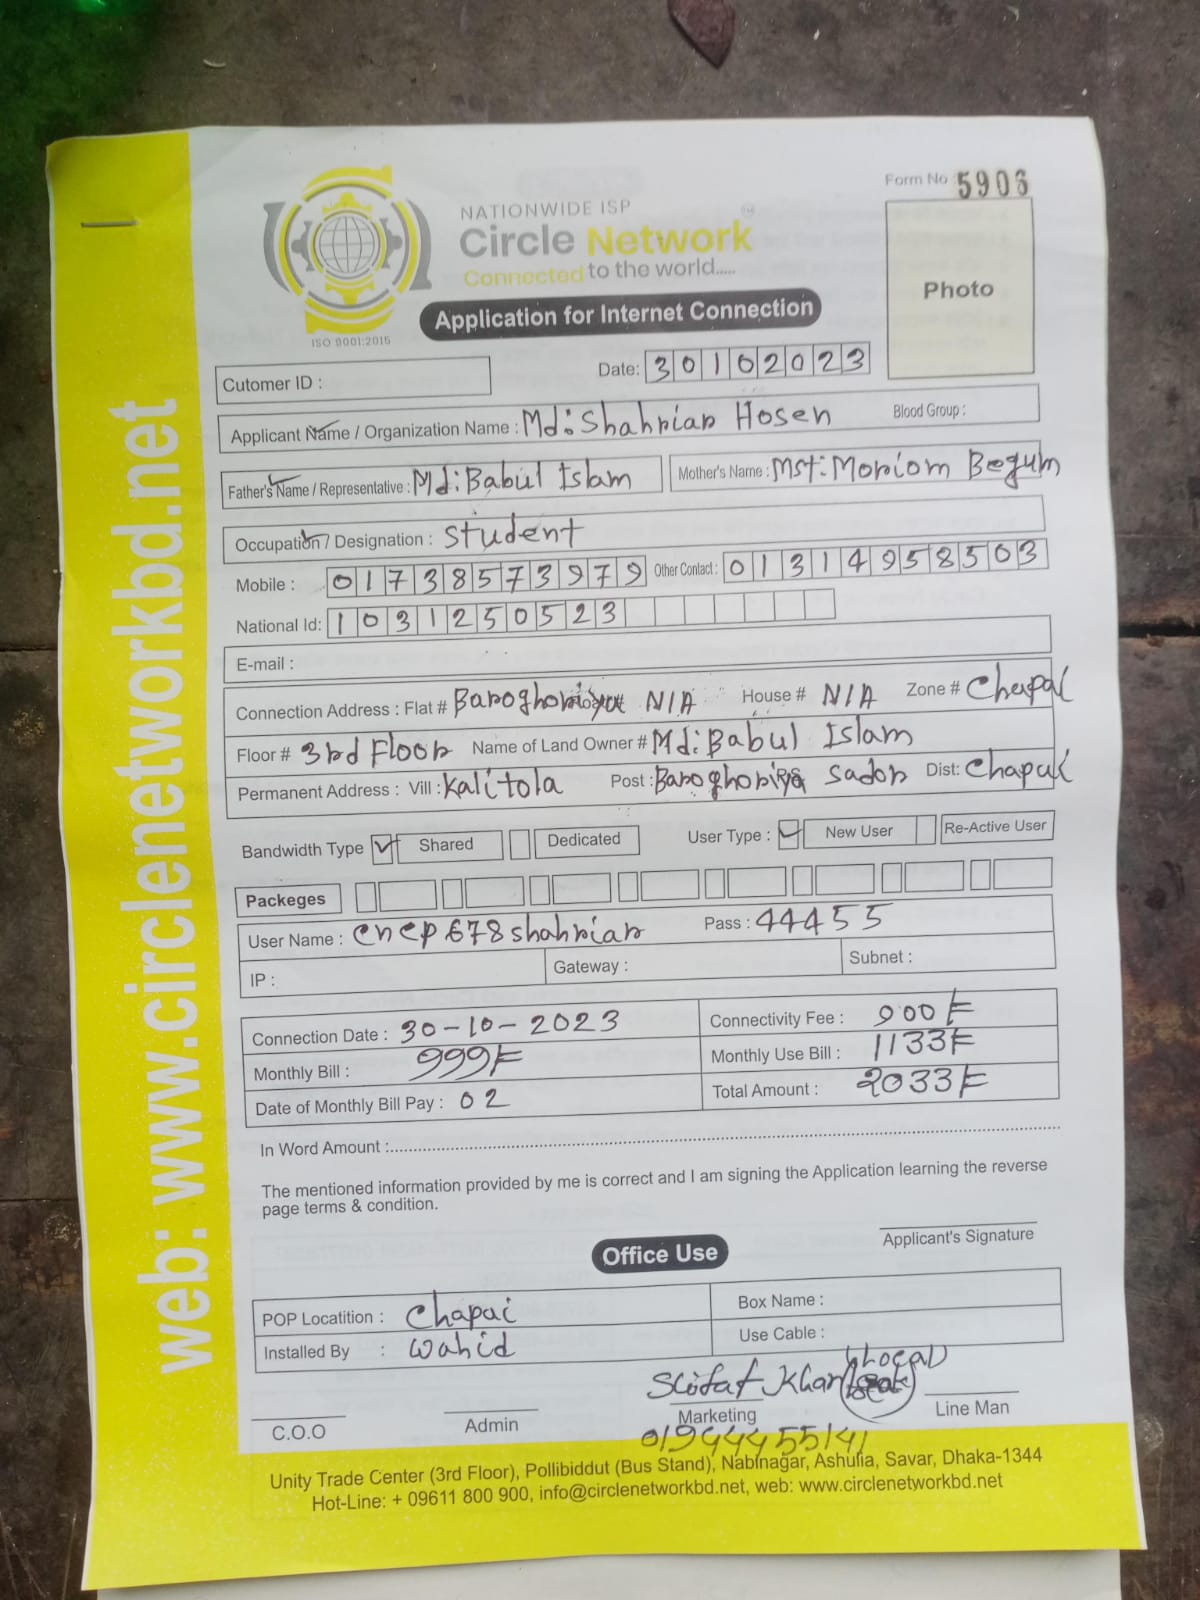 Form No 5906
NATIONWIDE ISP
Circle Network
Connected to the world.....
ISO 9001:2015
Application for Internet Connection
Photo
Cutomer ID :
Date: 30102023
Applicant Name / Organization Name : Md: Shahriar Hosen Blood Group :
Father's Name / Representative : Md: Babul Islam Mother's Name : Mst: Moriom Begum
Occupation / Designation : Student
Mobile : 01738573979 Other Contact : 01314958503
National Id: 1031250523
E-mail :
Connection Address : Flat # Baroghoriya N/A House # N/A Zone # Chapai
Floor # 3rd Floor Name of Land Owner # Md: Babul Islam
Permanent Address : Vill : Kalitola Post : Baroghoriya Sador Dist: Chapai
Bandwidth Type Shared Dedicated User Type : New User Re-Active User
Packeges
User Name : cncp678shahriar Pass : 44455
IP : Gateway : Subnet :
Connection Date : 30-10-2023 Connectivity Fee : 900/=
Monthly Bill : 999/= Monthly Use Bill : 1133/=
Date of Monthly Bill Pay : 02 Total Amount : 2033/=
In Word Amount :
The mentioned information provided by me is correct and I am signing the Application learning the reverse
page terms & condition.
Applicant's Signature
Office Use
POP Locatition : Chapai Box Name :
Installed By : Wahid Use Cable :
Sifat Khan Local
C.O.O Admin Marketing Line Man
01944455141
Unity Trade Center (3rd Floor), Pollibiddut (Bus Stand), Nabinagar, Ashulia, Savar, Dhaka-1344
Hot-Line: + 09611 800 900, info@circlenetworkbd.net, web: www.circlenetworkbd.net
web: www.circlenetworkbd.net